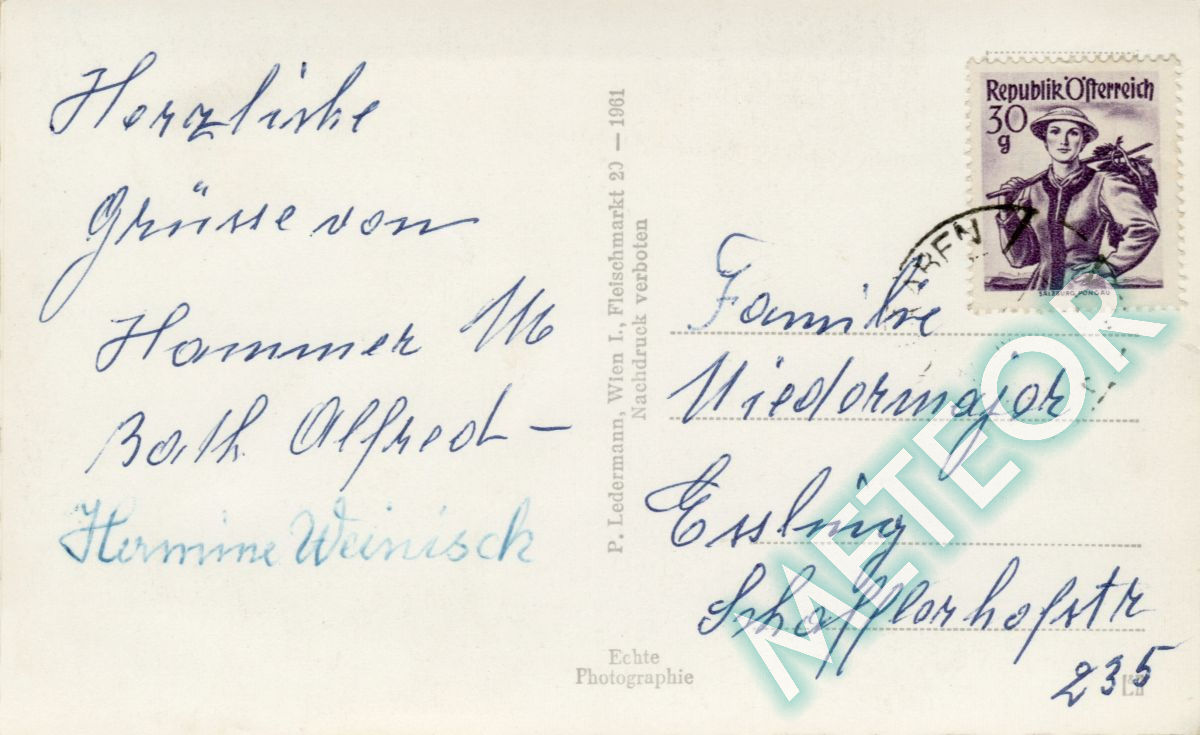 Herzliche
Grüsse von
Hammer M
Bath Alfred –
Hermine Weinisch
P. Ledermann, Wien I., Fleischmarkt 20 — 1961
Nachdruck verboten
Echte
Photographie
Republik Österreich
30
g
SALZBURG, PONGAU
Familie
Niedermajor
Essling
Schafflerhofstr
235
L&H
METEOR